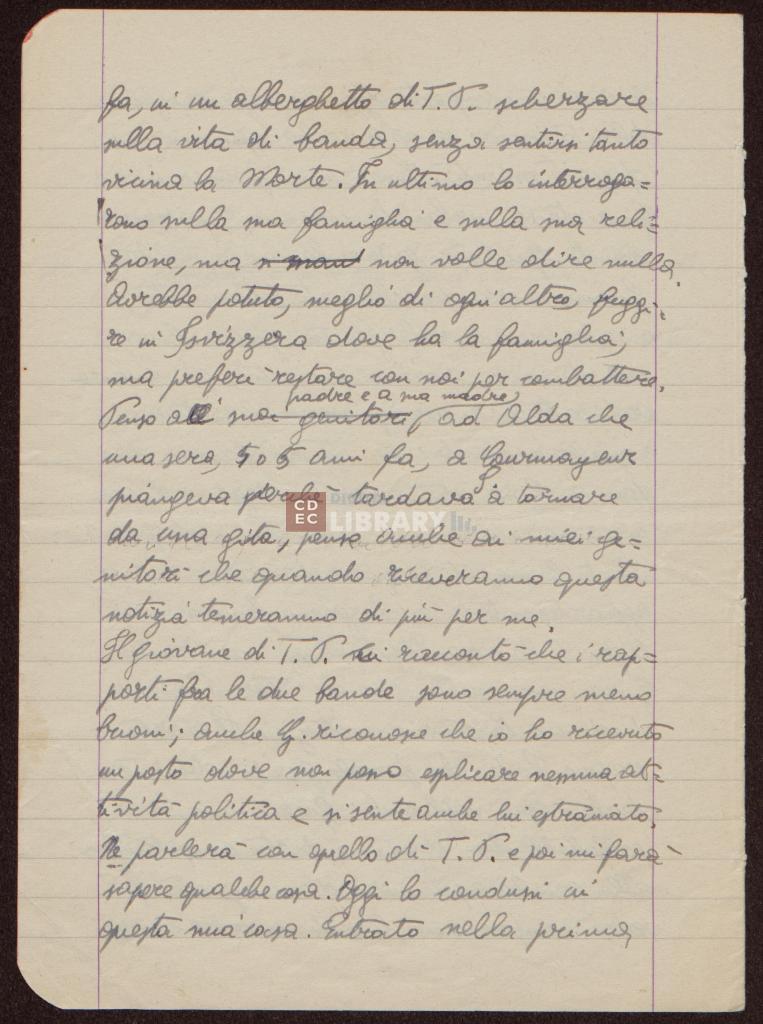 fa, in un alberghetto di T. P. scherzare
sulla vita di banda, senza sentirsi tanto
vicina la Morte. In ultimo lo interroga=
rono sulla sua famiglia e sulla sua reli=
gione, ma non volle dire nulla.
Avrebbe potuto, meglio di ogni altro, fuggi=
re in Isvizzera dove ha la famiglia,
ma preferì restare con noi per combattere.
padre e a sua madre,
Penso al suoi genitori, ad Alda che
una sera, 4 o 5 anni fa, a Courmayeur
piangeva perchè tardava a tornare
CD
EC
DIGITAL
LIBRARY
da una gita, penso anche ai miei ge=
nitori che quando riceveranno questa
notizia temeranno di più per me.
Il giovane di T. P. mi raccontò che i rap=
porti fra le due bande sono sempre meno
buoni; anche G. riconosce che io ho ricevuto
un posto dove non posso esplicare nessuna at=
tività politica e si sente anche lui estraniato.
Ne parlerà con quello di T. P. e poi mi farà
sapere qualche cosa. Oggi lo condussi in
questa mia casa. Entrato nella prima